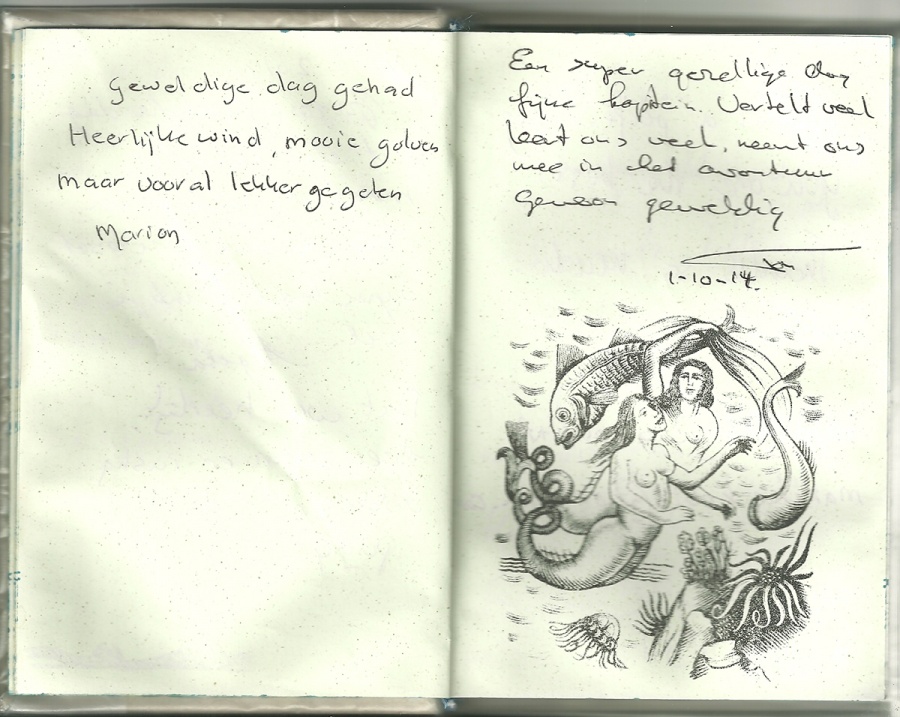 Geweldige dag gehad
Heerlijke wind, mooie golven
maar vooral lekker gegeten
Marion
Een super gezellige dag
fijne kapitein. Vertelt veel
leert ons veel, neemt ons
mee in het avontuur
Gewoon geweldig
1-10-14.